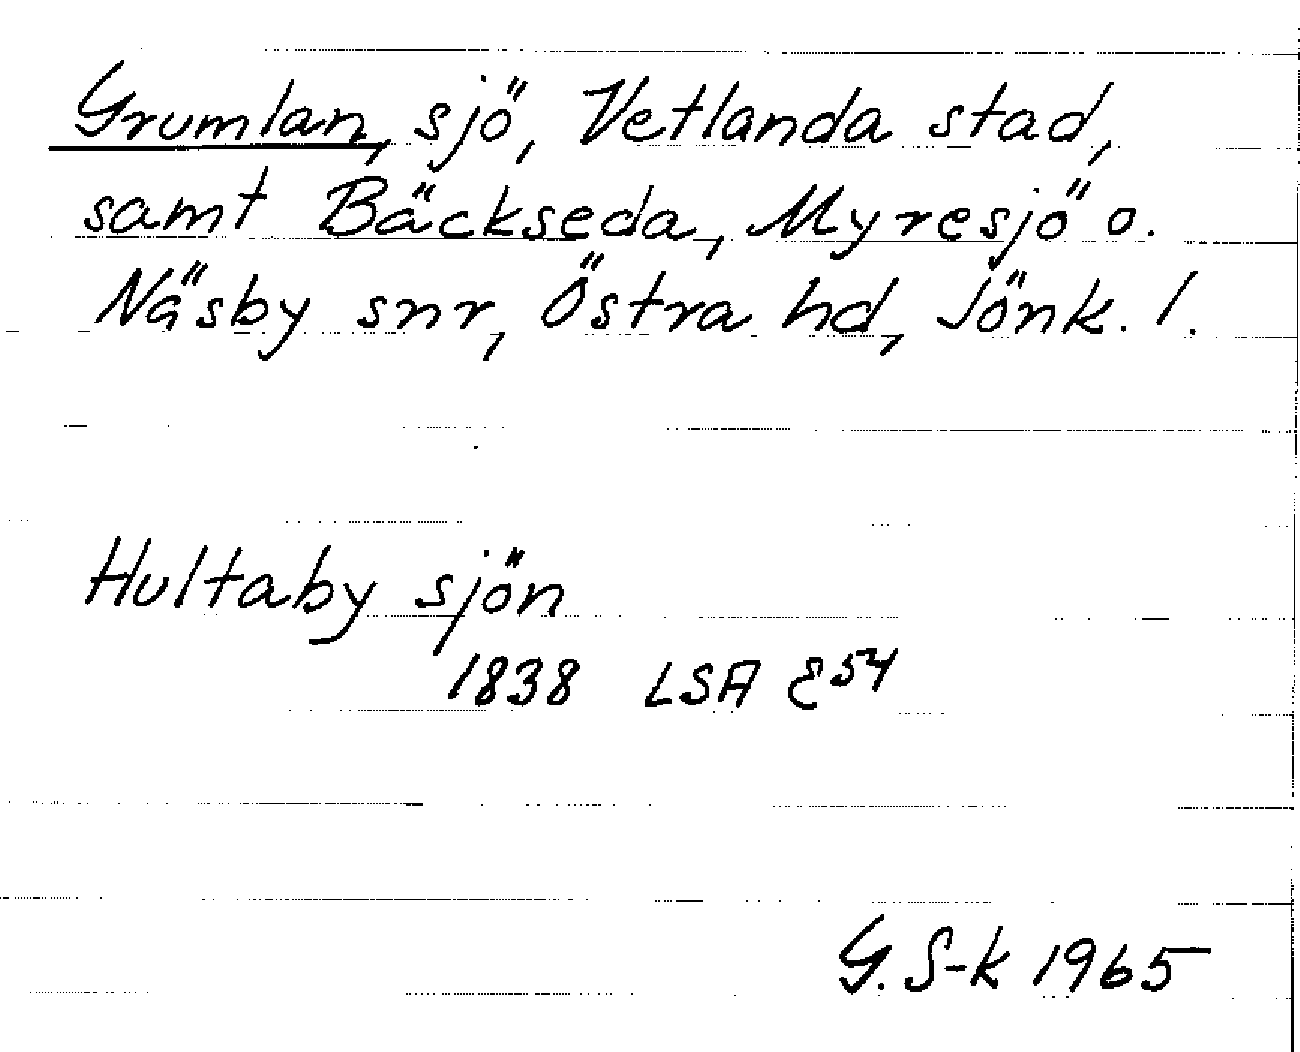 Grumlan, sjö, Vetlanda stad,
samt Bäckseda, Myresjö o.
Näsby snr, Östra hd, Jönk. l.
Hultaby sjön
1838 LSA E54
G. S-k 1965